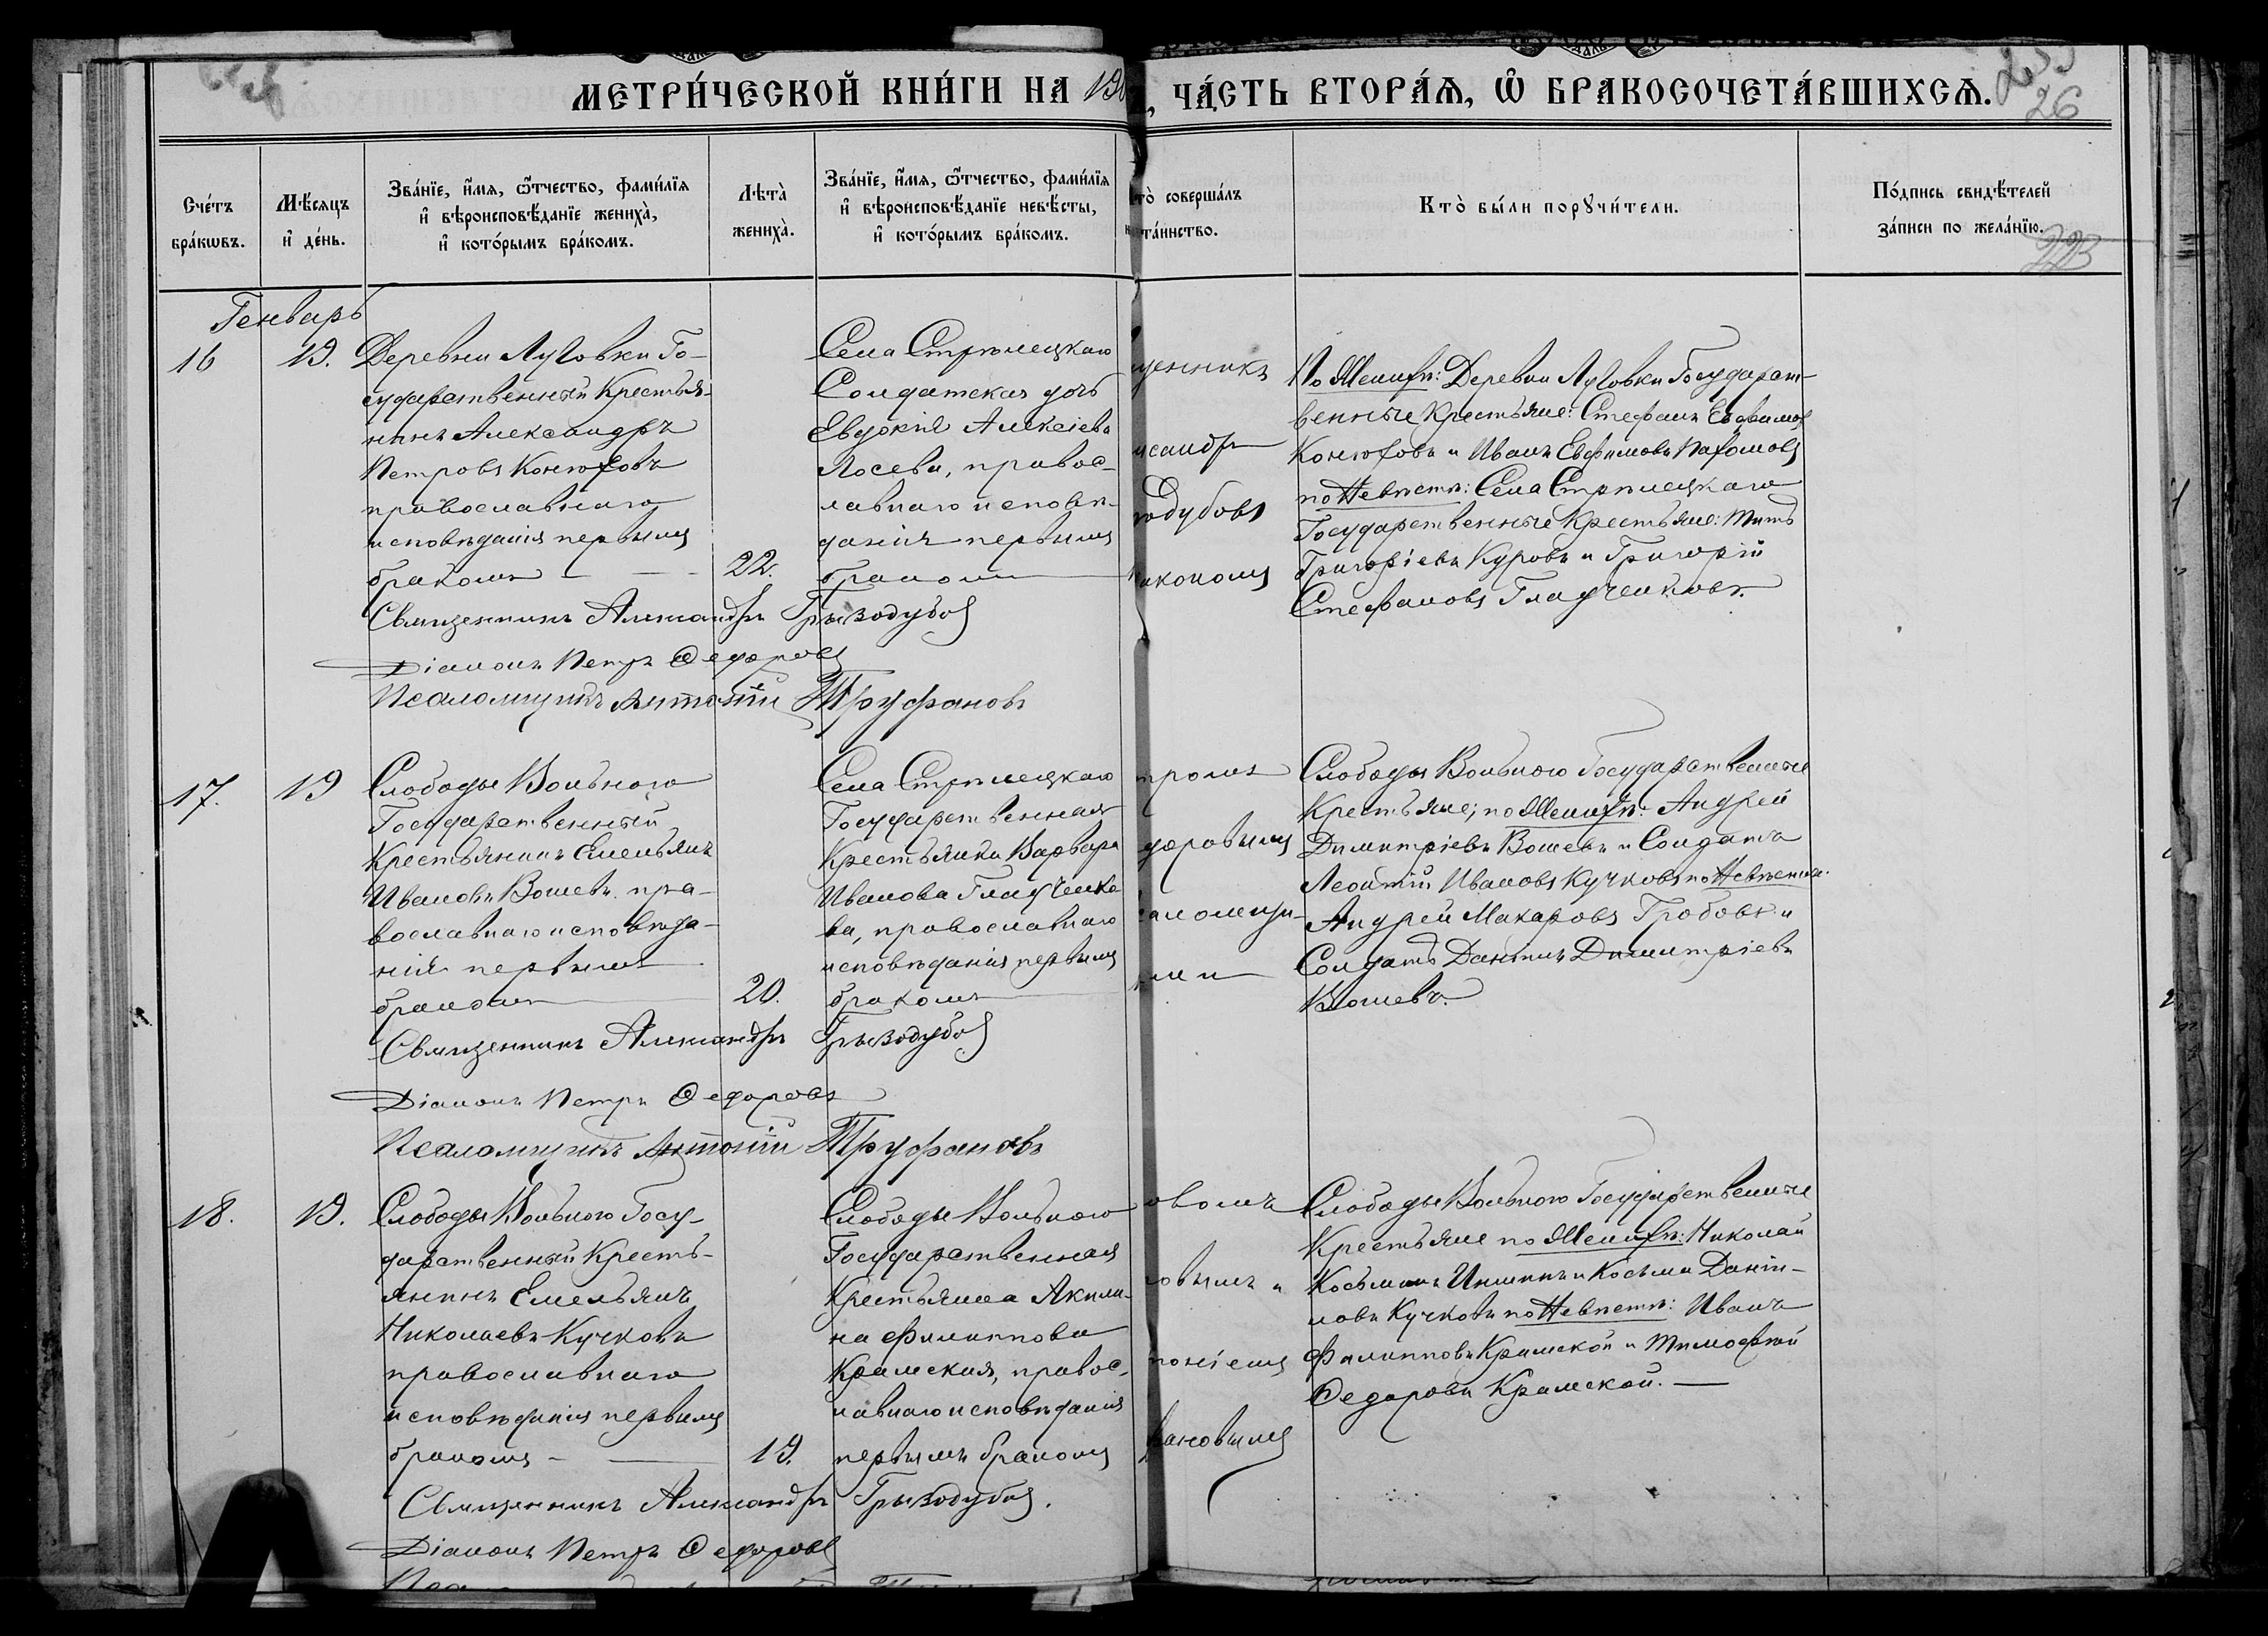 МЕТРИ́ЧЕСКОЙ КНИ́ГИ НА 190 , ЧА́СТЬ ВТОРА́Ѧ, Ѽ БРАКОСОЧЕТА́ВШИХСѦ.
26
Сче́тъ бра́кѡвъ.
Мѣ́сѧцъ и҆ де́нь.
Зва́нїе, и҆́мѧ, ѻ҆́тчество, фами́лїѧ и҆ вѣроисповѣ́данїе жениха̀, и҆ кото́рымъ бра́комъ.
Лѣта̀ жениха̀.
Зва́нїе, и҆́мѧ, ѻ҆́тчество, фами́лїѧ и҆ вѣроисповѣ́данїе невѣ́сты, и҆ кото́рымъ бра́комъ.
то̀ соверша́лъ та́инство.
Кто̀ бы́ли порꙋчи́тели.
По́дпись свидѣ́телей за́писи по жела́нїю.
223
Генварь
16
19.
Деревни Луговки Го-
сударственный Крестья-
нинъ Александръ
Петровъ Конюховъ
православнаго
исповѣданія первымъ
бракомъ
22.
Села Стрѣлецкаго
Солдатская дочь
Евдокія Алексіева
Лосева, правос-
лавнаго исповѣ-
данія первымъ
бракомъ
щенникъ
ксандръ
зодубовъ
иакономъ
По Женихѣ: Деревни Луговки Государст-
венные Крестьяне: Стефанъ Евфимовъ
Конюховъ и Иванъ Евфимовъ Пахомовъ
по Невѣстѣ: Села Стрѣлецкаго
Государственные Крестьяне: Титъ
Григоріевъ Куровъ и Григорій
Стефановъ Гладченковъ.
Священникъ Александръ Грызодубовъ
Діаконъ Петръ Ѳедоровъ
Псаломщикъ Антоній Труфановъ
17.
19
Слободы Вольного
Государственный
Крестьянинъ Емельянъ
Ивановъ Вошевъ, пра-
вославнаго исповѣда-
нія первымъ
бракомъ
20.
Села Стрѣлецкаго
Государственная
Крестьянка Варвара
Иванова Гладченко-
ва, православнаго
исповѣданія первымъ
бракомъ
тромъ
доровымъ
саломщи-
Слободы Вольного Государственные
Крестьяне; по Женихѣ: Андрей
Димитріевъ Вошевъ и Солдатъ
Леонтій Ивановъ Кучковъ по Невѣстѣ:
Андрей Макаровъ Гробовъ и
Солдатъ Даніилъ Димитріевъ
Вошевъ.
Священникъ Александръ Грызодубовъ
Діаконъ Петръ Ѳедоровъ
Псаломщикъ Антоній Труфановъ
18.
19.
Слободы Вольного Госу-
дарственный Кресть-
янинъ Емельянъ
Николаевъ Кучковъ
православнаго
исповѣданія первымъ
бракомъ
19.
Слободы Вольного
Государственная
Крестьянка Акили-
на Филиппова
Крамская, правос-
лавнаго исповѣданія
первымъ бракомъ
овымъ и
тоніемъ
фановымъ
Слободы Вольного Государственные
Крестьяне по Женихѣ: Николай
Косьминъ и Косьма Даніи-
ловъ Кучковъ по Невѣстѣ: Иванъ
Филипповъ Крамской и Тимофей
Ѳедоровъ Крамской.
Священникъ Александръ Грызодубовъ.
Діаконъ Петръ Ѳедоровъ